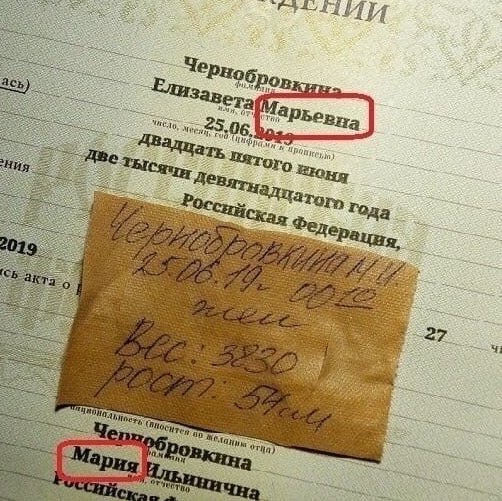 ДЕНИИ
Чернобровкина
фамилия
ась)
Елизавета Марьевна
имя, отчество
25.06.2019
число, месяц, год (цифрами и прописью)
двадцать пятого июня
две тысячи девятнадцатого года
ения
Российская Федерация,
2019
сь акта о
Чернобровкина М.И.
25.06.19г 00 10
жен
Вес: 3830
рост: 54см
27
национальность (вносится по желанию отца)
Чернобровкина
Мария Ильинична
отчество
Российская